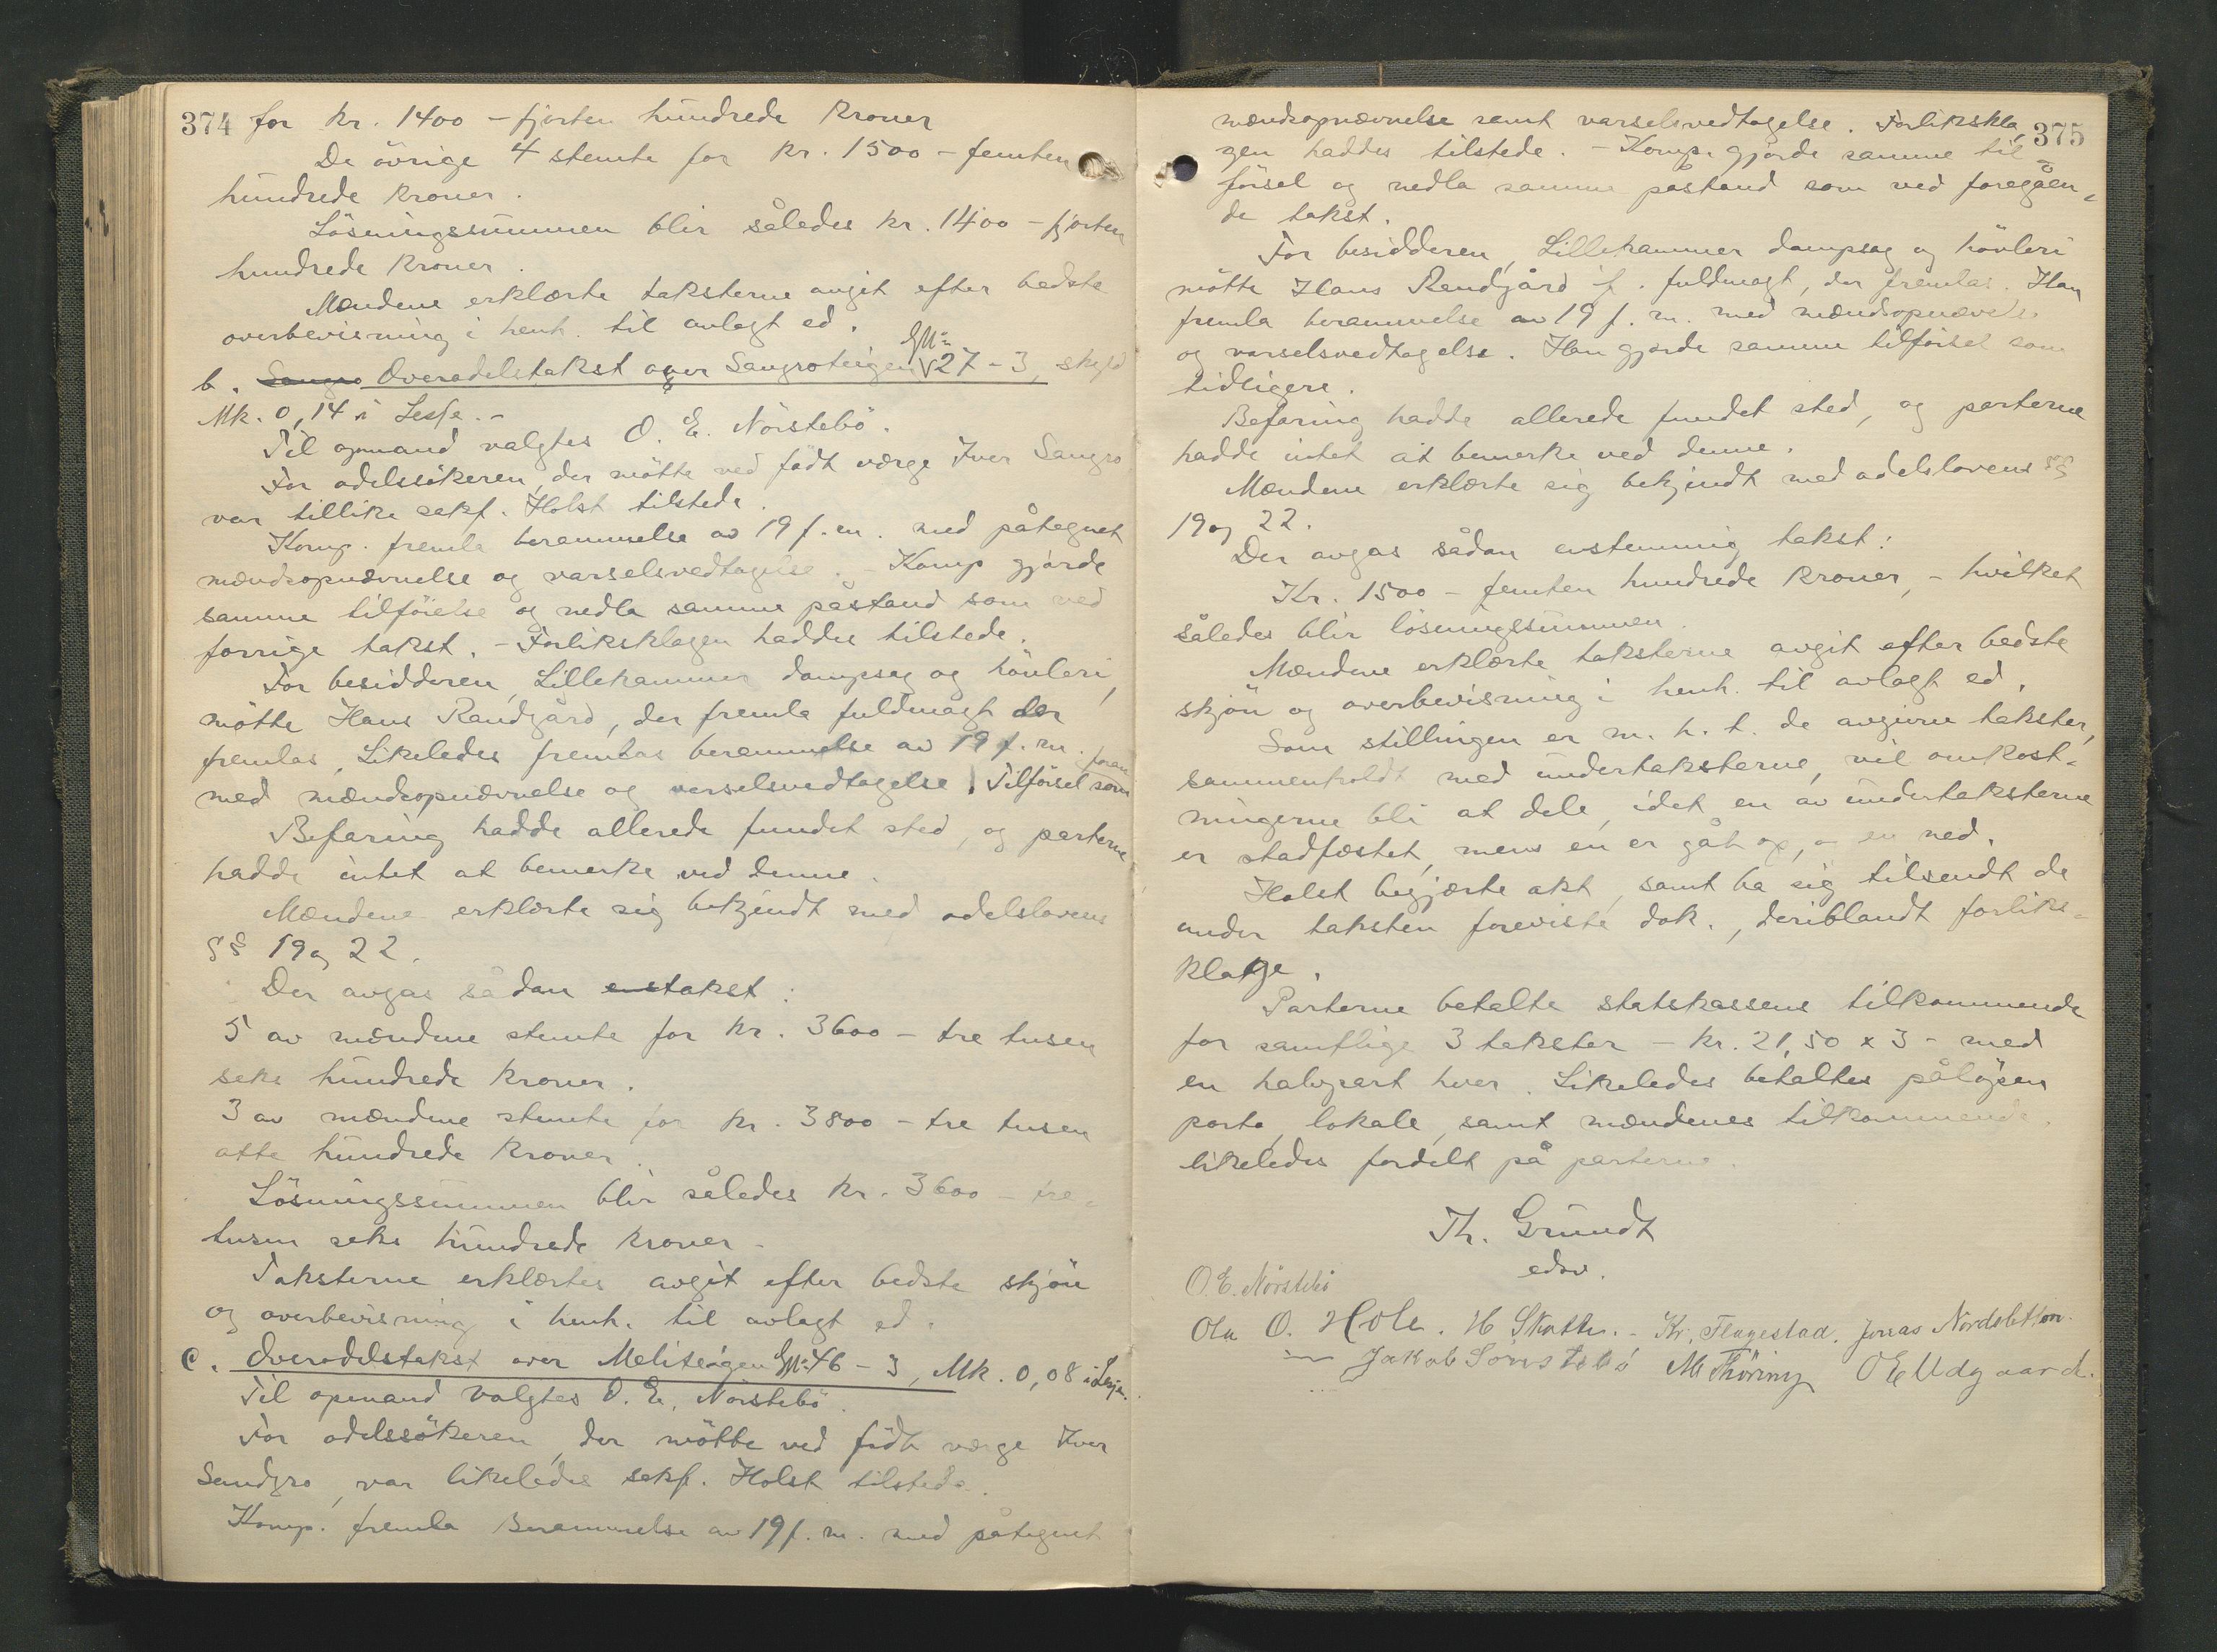 374 for kr. 1400 - fjorten hundrede kroner
De övrige 4 stemte for kr. 1500 - femten
hundrede kroner.
Lösningssummen blir således kr. 1400 - fjorten
hundrede kroner.
Mændene erklærte taksterne avgit efter bedste
overbevisning i henh. til avlagt ed.
b. Sangro Overodelstakst over Sangroteigen GNo 27 - 3, skyld
Mk. 0,14 i Lesje. -
Til opmand valgtes O. E. Nörstebö.
For odelssökeren, der mötte ved födt værge Iver Sangro
var tillike sakf. Holst tilstede.
Komp. fremla berammelse av 19 f. m. med påtegnet
mændsopnævnelse og varselsvedtagelse. - Komp gjorde
samme tilföielse og nedla samme påstand som ved
forrige takst. - Forliksklagen haddes tilstede.
For besidderen, Lillehammer dampsag og hövleri,
mötte Hans Randgård, der fremla fuldmagt der
fremlas. Likeledes fremlas berammelse av 19 f. m.
med mændsopnævnelse og varselsvedtagelse | Tilförsel som foran
Befaring hadde allerede fundet sted, og parterne
hadde intet at bemerke ved denne.
Mændene erklærte sig bekjendt med odelslovens
§§ 19 og 22.
Der avgas sådan enstakst:
5 av mændene stemte for kr. 3600 - tre tusen
seks hundrede kroner.
3 av mændene stemte for kr. 3800 - tre tusen
otte hundrede kroner.
Lösningssummen blir således kr. 3600 - tre-
tusen seks hundrede kroner -
Taksterne erklærtes avgit efter bedste skjön
og overbevisning i henh. til avlagt ed.
c. Overodelstakst over Meliteigen GNo 46 - 3, Mk. 0,08 i Lesje.
Til opmand valgtes O. E. Nörstebö.
For odelssökeren, der mötte ved födt værge Iver
Sandgro, var likeledes sakf. Holst tilstede.
Komp. fremla Berammelse av 19 f. m. med påtegnet
375
mændsopnævnelse samt varselsvedtagelse. Forlikskla-
gen haddes tilstede. - Komp. gjorde samme til-
försel og nedla samme påstand som ved foregåen-
de takst.
For besidderen, Lillehammer dampsag og hövleri
mötte Hans Randgård if. fuldmagt, der fremlas. Han
fremla berammelse av 19 f. m. med mændsopnævelse
og varselsvedtagelse. Han gjorde samme tilförsel som
tidligere.
Befaring hadde allerede fundet sted, og parterne
hadde intet at bemerke ved denne.
Mændene erklærte sig bekjendt med odelslovens §§
19 og 22.
Der avgas sådan enstemmig takst:
Kr. 1500 - femten hundrede kroner, - hvilket
således blir lösningssummen.
Mændene erklærte taksterne avgit efter bedste
skjön og overbevisning i henh. til avlagt ed.
Som stillingen er m. h. t. de avgivne takster,
sammenholdt med undertaksterne, vil omkost-
ningerne bli at dele, idet en av undertaksterne
er stadfæstet, mens en er gåt op, og en ned.
Holst begjærte akt, samt ba sig tilsendt de
under taksten foreviste dok., deriblandt forliks-
klage.
Parterne betalte statskassens tilkommende
for samtlige 3 takster - kr. 21,50 x 3 - med
en halvpart hver. Likeledes betaltes påløpen
porto, lokale, samt mændenes tilkommende,
likeledes fordelt på parterne.
Th. Grundt
edsv.
O. E. Nörstebö
Ola O. Hole. H Skotte. - Kr. Flagestad. Jonas Nordsletten.
Jakob Sönstebö M Thöring O E Udgaard.